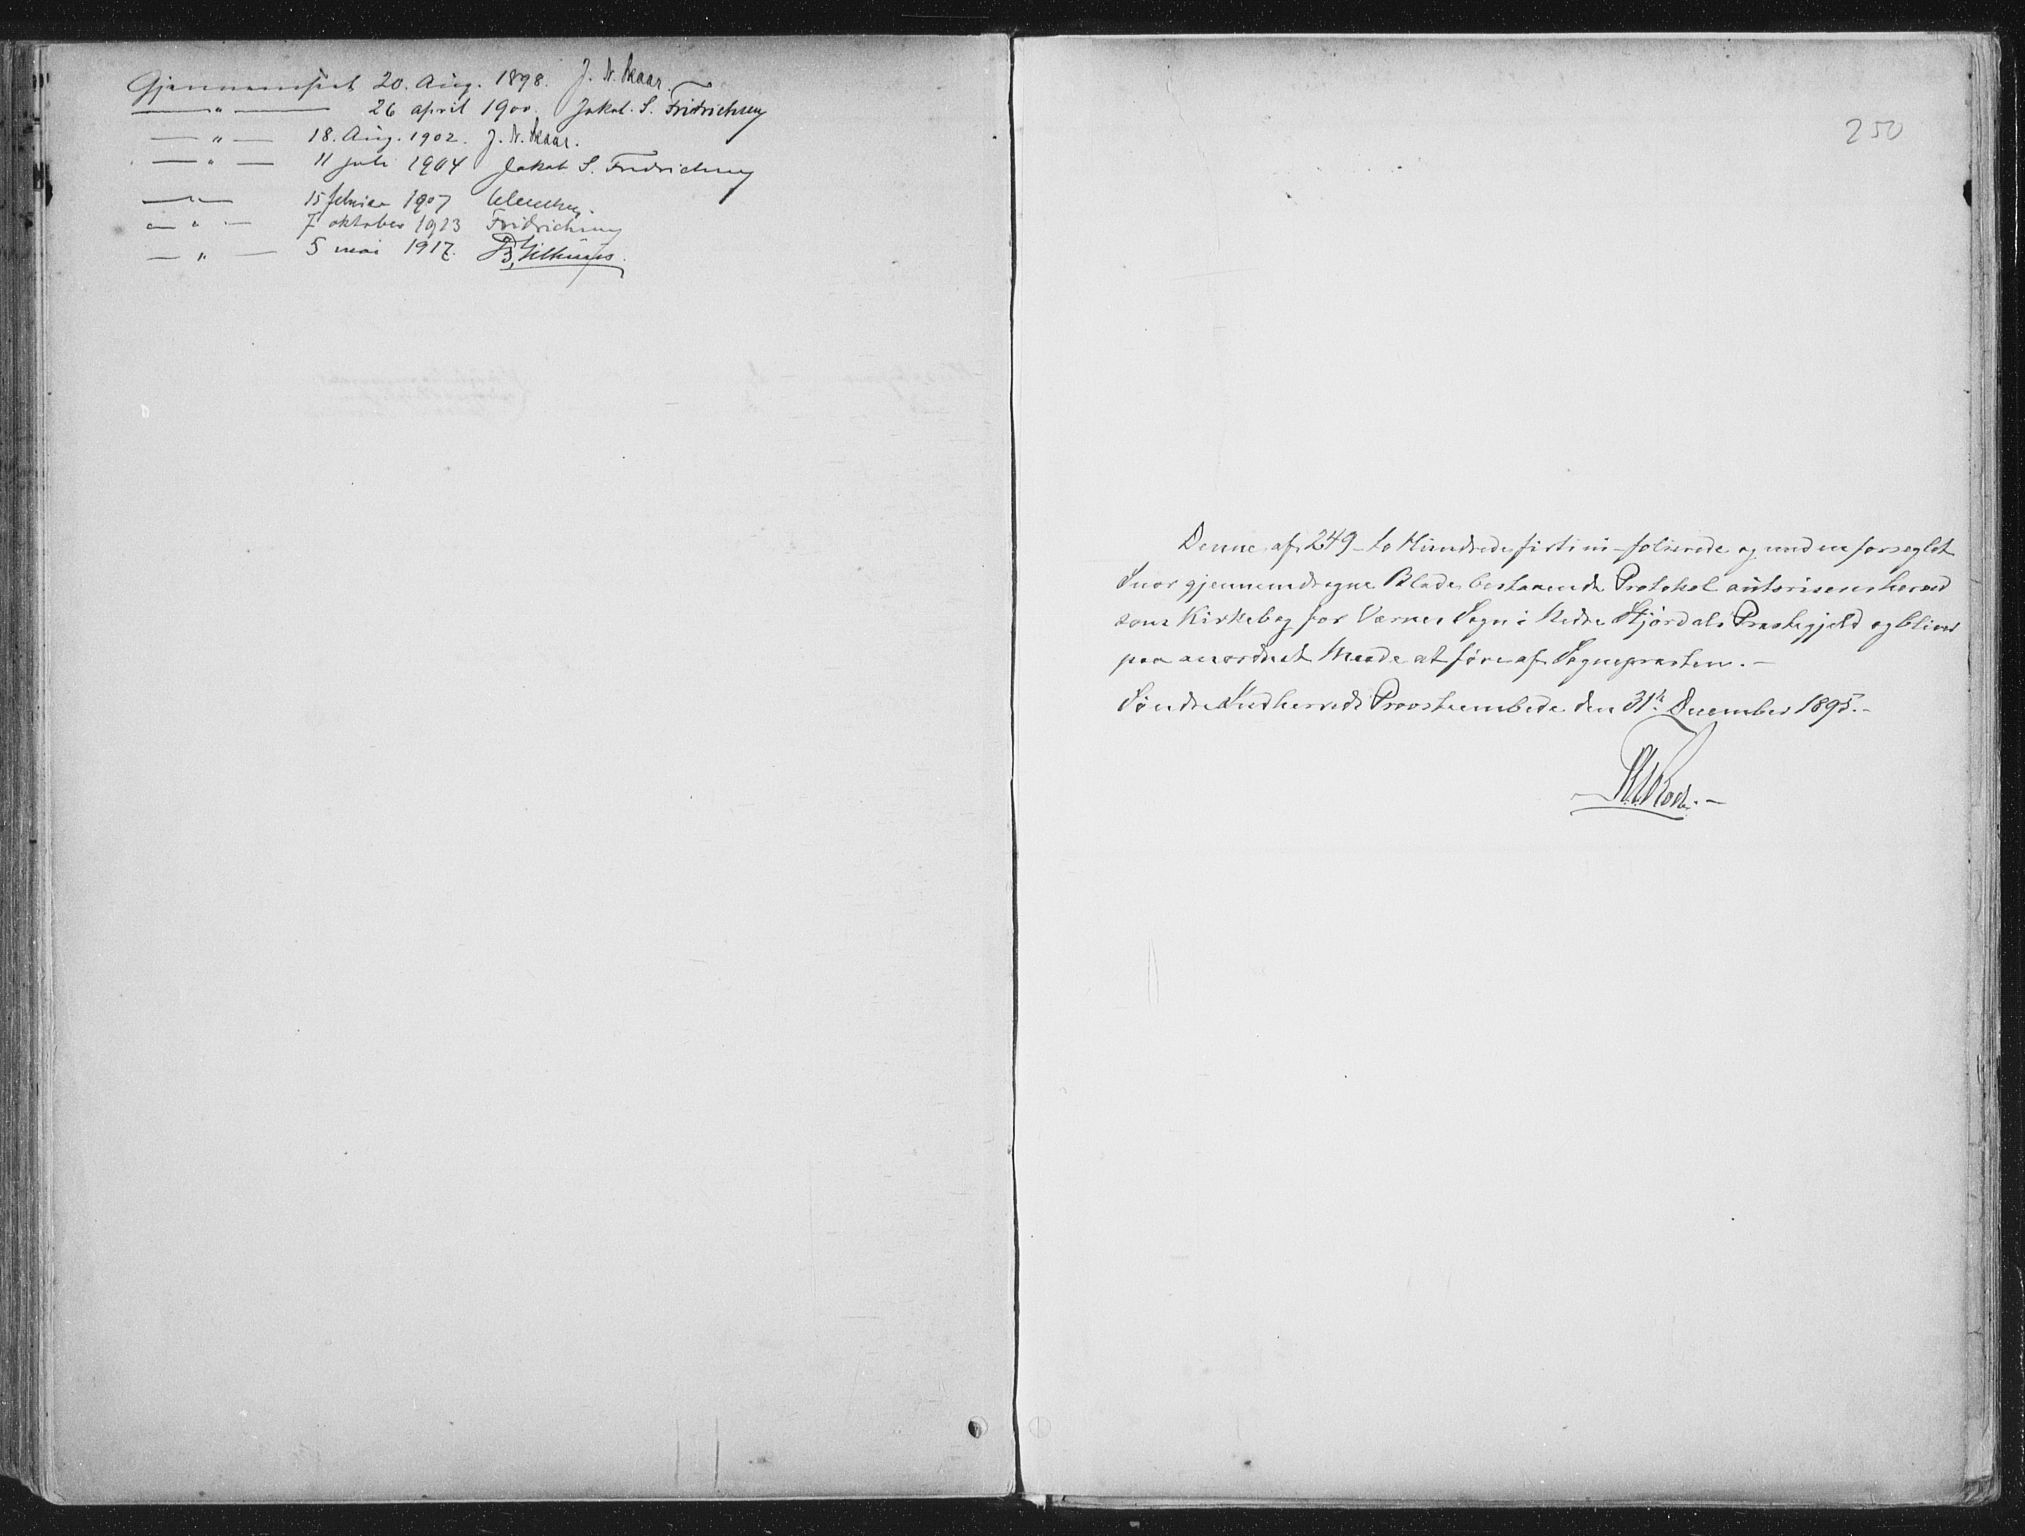 Gjennemseet 20. Aug. 1898. J. N. Skaar.
— " — 26 april 1900. Jakob. S. Fridrichsen
— " — 18. Aug. 1902. J. N. Skaar.
— " — 11 juli 1904 Jakob S. Fridrichsen
— " — 15 februar 1907
— " — 7 oktober 1913 Fridrichsen
— " — 5 mai 1917.
250
Denne af 249 - to Hundrede firti ni - folierede og med en forseglet
Snor gjennemdragne Blade bestaaende Protokol autoriseres herved
som Kirkebog for Værnes Sogn i Nedre Stjørdals Præstegjeld og bliver
paa anordnet Maade at føre af Sognepræsten. —
Søndre Indherreds Provsteembede den 31te December 1895. —